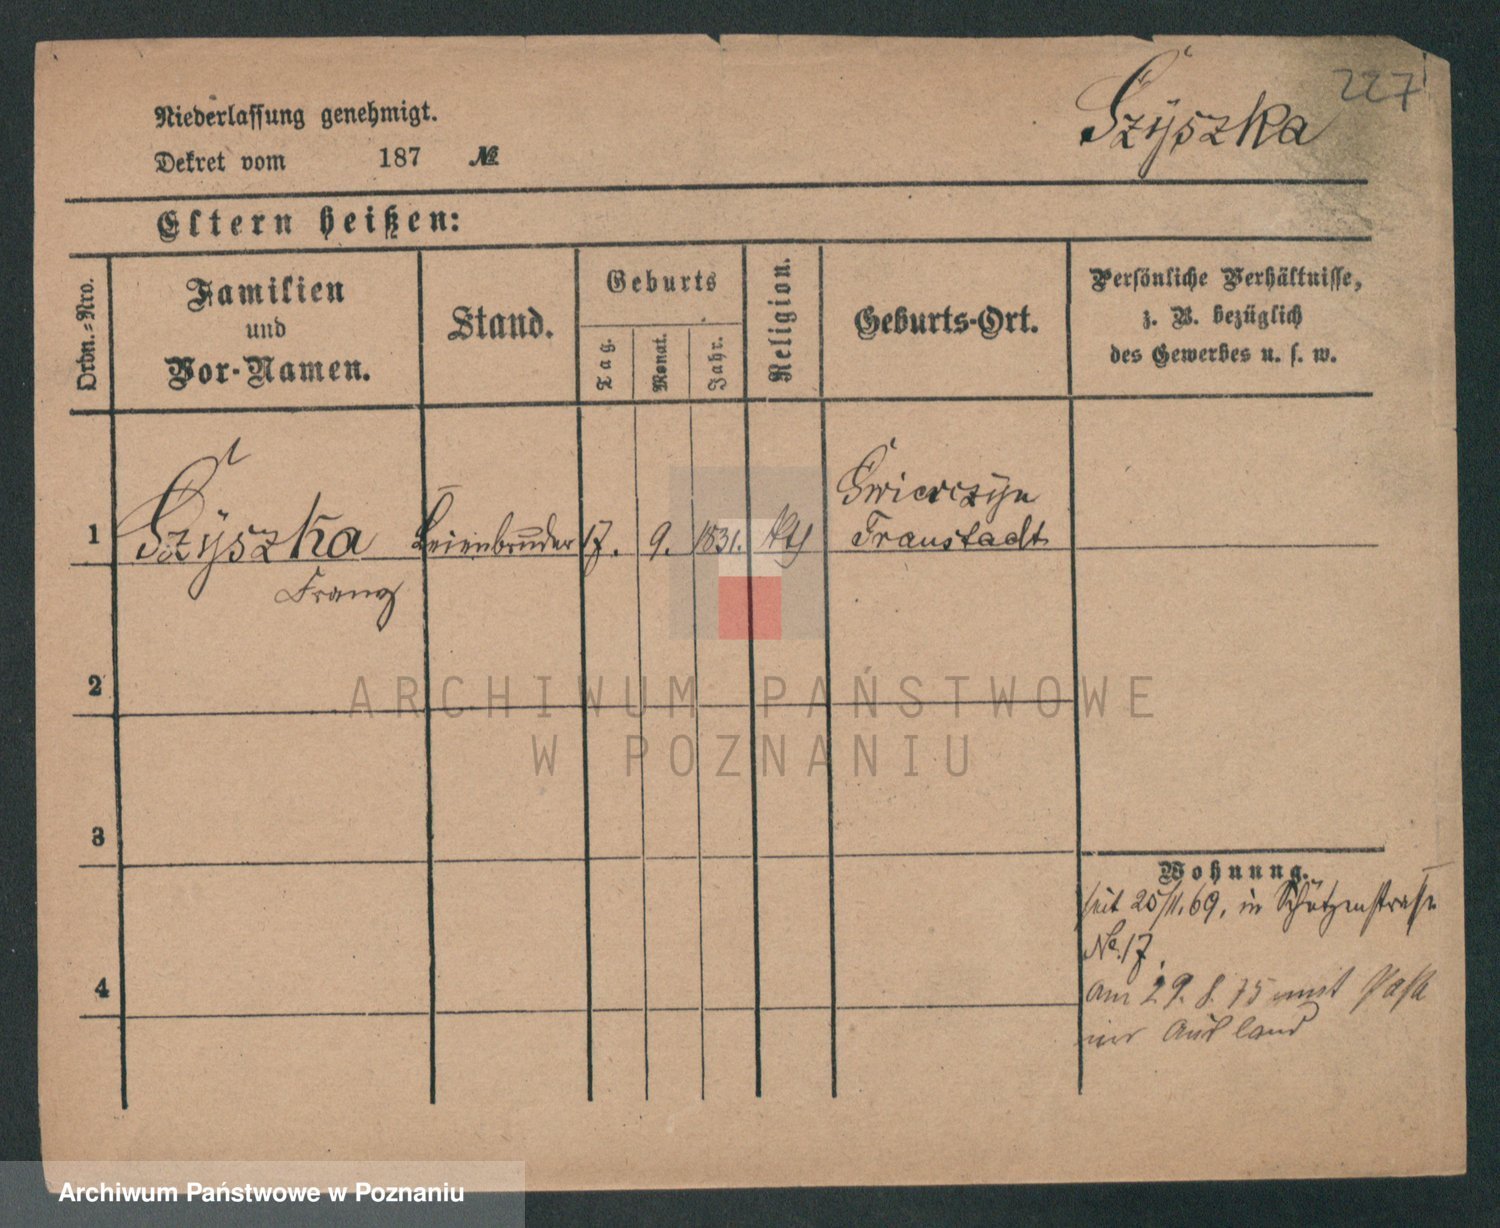 227
Szyszka
Niederlassung genehmigt.
Dekret vom 187 №
Eltern heißen:
Ordn.-Nro.
Familien
und
Vor-Namen.
Stand.
Geburts
Tag.
Monat.
Jahr.
Religion.
Geburts-Ort.
Persönliche Verhältnisse,
z. B. bezüglich
des Gewerbes u. s. w.
1 Szyszka 17. 9. 1831. Kth Swierczyn
Fraustadt
Franz
2
3
4
Wohnung.
seit 25/11.69, in Schützenstraße
No. 17.
am 29. 8. 75 mit Paß
ins Ausland
ARCHIWUM PAŃSTWOWE
W POZNANIU
Archiwum Państwowe w Poznaniu